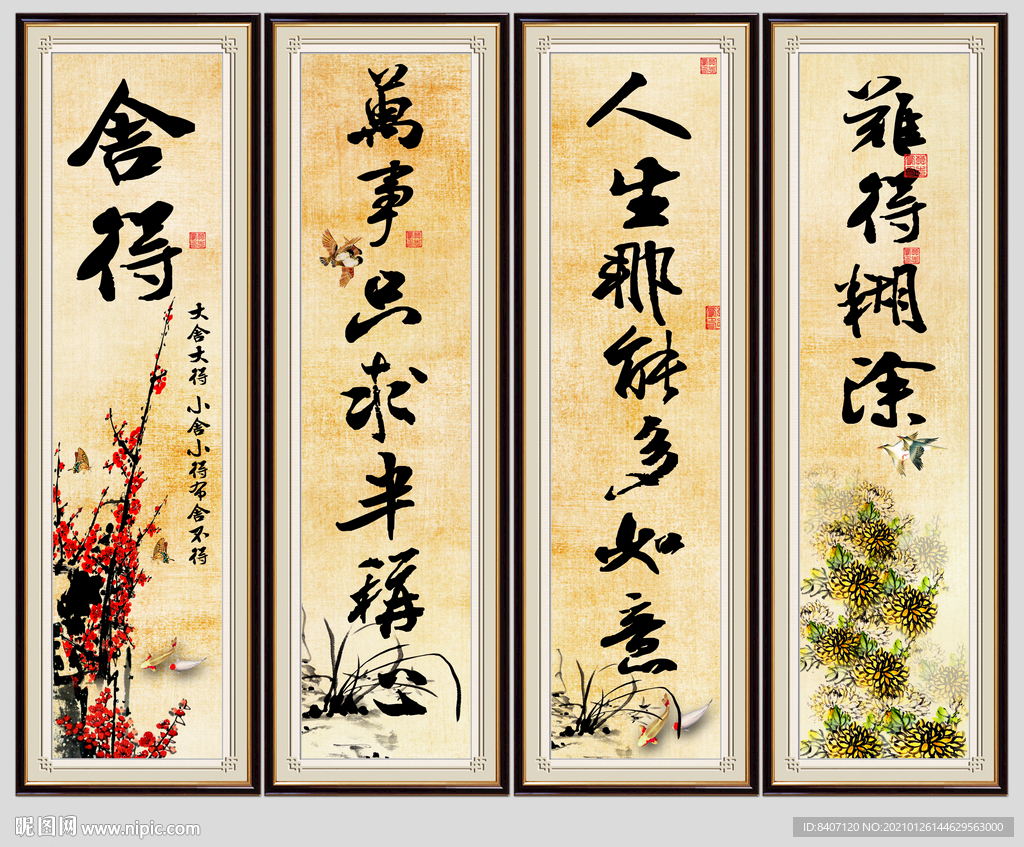 舍得
大舍大得 小舍小得 不舍不得
萬事只求半稱心
人生那能多如意
難得糊涂
昵图网 www.nipic.com
ID:8407120 NO:20210126144629563000